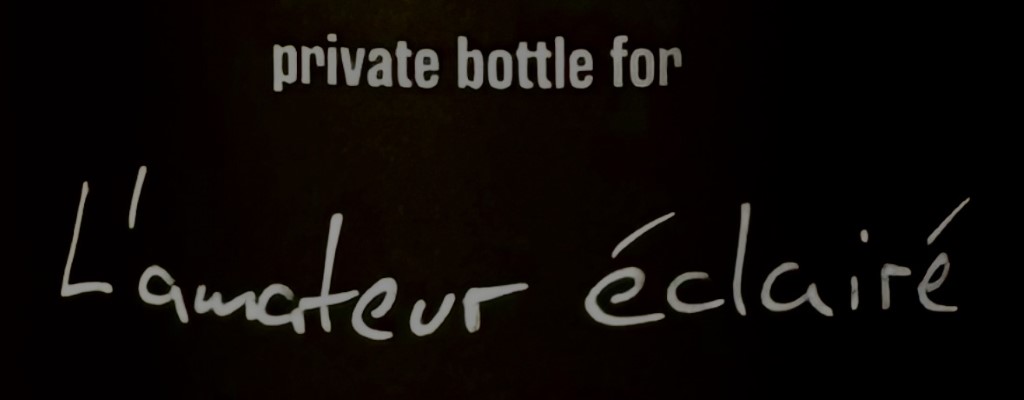 private bottle for
L'amateur éclairé